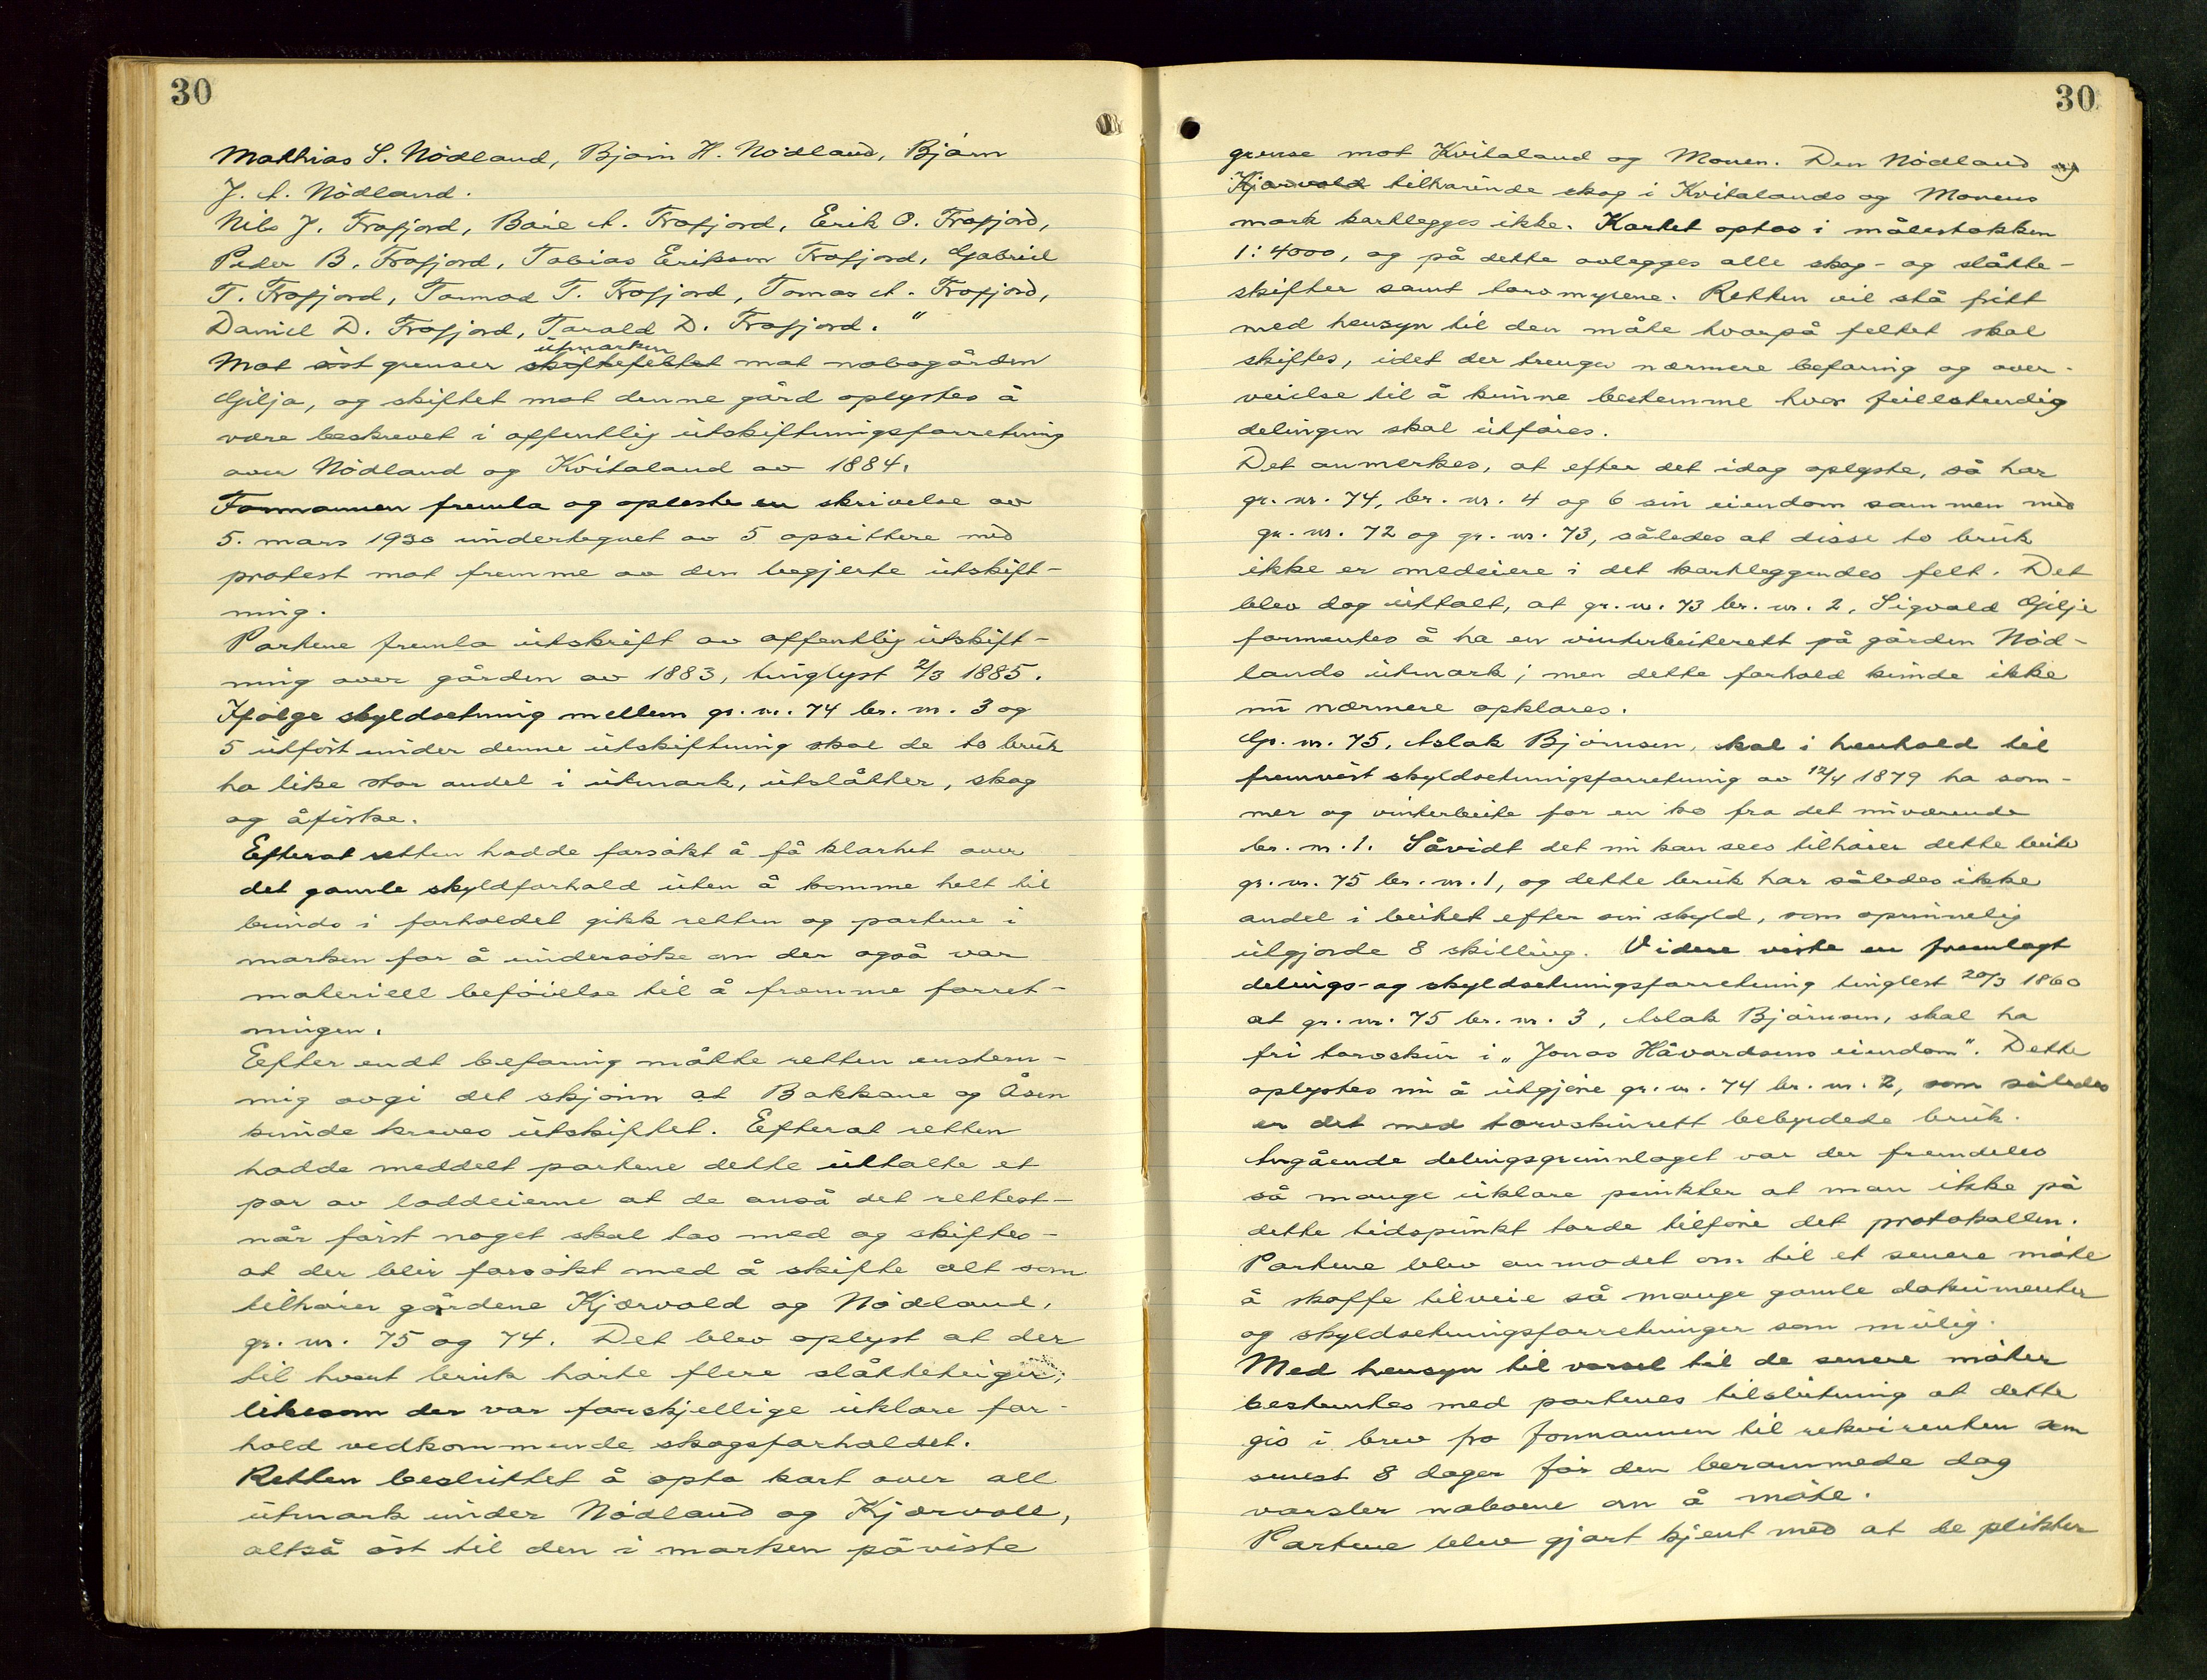 30
Mathias S. Nödland, Bjørn H. Nödland, Bjørn
J. A. Nödland.
Nils J. Frafjord, Båre A. Frafjord, Erik O. Frafjord,
Peder B. Frafjord, Tobias Eriksson Frafjord, Gabriel
T. Frafjord, Tormod T. Frafjord, Tomas A. Frafjord,
Daniel D. Frafjord, Tarald D. Frafjord. "
utmarken
Mot öst grenser skiftefeltet mot nabogården
Gilja, og skiftet mot denne gård oplystes å
være beskrevet i offentlig utskiftningsforretning
over Nödland og Kvitaland av 1884.
Formannen fremla og opleste en skrivelse av
5. mars 1930 undertegnet av 5 opsittere med
protest mot fremme av den begjerte utskift-
ning.
Partene fremla utskrift av offentlig utskift-
ning over gården av 1883, tinglyst 2/3 1885.
Ifölge skyldsetning mellem gr. nr. 74 br. nr. 3 og
5 utfört under denne utskiftning skal de to bruk
ha like stor andel i utmark, utslåtter, skog
og åfiske.
Efterat retten hadde forsökt å få klarhet over
det gamle skyldforhold uten å komme helt til
bunds i forholdet gikk retten og partene i
marken for å undersöke om der også var
materiell beföielse til å fremme forret-
ningen.
Efter endt befaring måtte retten enstem-
mig avgi det skjönn at Bakkane og Åsen
kunde kreves utskiftet. Efterat retten
hadde meddelt partene dette uttalte et
par av loddeierne at de anså det rettest -
når först noget skal tas med og skiftes -
at der blir forsökt med å skifte alt som
tilhörer gårdene Kjærvold og Nödland,
gr. nr. 75 og 74. Det blev oplyst at der
til hvert bruk hörte flere slåtteteiger,
likesom der var forskjellige uklare for-
hold vedkommende skogsforholdet.
Retten besluttet å opta kart over all
utmark under Nödland og Kjærvoll,
altså öst til den i marken påviste
30
grense mot Kvitaland og Monen. Den Nödland og
Kjærvold tilhörende skog i Kvitalands og Monens
mark kartlegges ikke. Kartet optas i målestokken
1:4000, og på dette avlegges alle skog- og slåtte-
skifter samt torvmyrene. Retten vil stå fritt
med hensyn til den måte hvorpå feltet skal
skiftes, idet der trenges nærmere befaring og over-
veielse til å kunne bestemme hvor fullstendig
delingen skal utföres.
Det anmerkes, at efter det idag oplyste, så har
gr. nr. 74, br. nr. 4 og 6 sin eiendom sammen med
gr. nr. 72 og gr. nr. 73, således at disse to bruk
ikke er medeiere i det kartleggendes felt. Det
blev dog uttalt, at gr. nr. 73 br. nr. 2, Sigvald Gilje
formentes å ha en vinterbeiterett på gården Nöd-
lands utmark; men dette forhold kunde ikke
nu nærmere opklares.
Gr. nr. 75, Aslak Björnsen, skal i henhold til
fremvist skyldsetningsforretning av 12/4 1879 ha som-
mer og vinterbeite for en ko fra det nuværende
br. nr. 1. Såvidt det nu kan sees tilhörer dette beite
gr. nr. 75 br. nr. 1, og dette bruk har således ikke
andel i beitet efter sin skyld, som oprinnelig
utgjorde 8 skilling. Videre viste en fremlagt
delings- og skyldsetningsforretning tinglest 20/3 1860
at gr. nr. 75 br. nr. 3, Aslak Björnsen, skal ha
fri torvskur i „Jonas Håvardsens eiendom". Dette
oplystes nu å utgjöre gr. nr. 74 br. nr. 2, som således
er det med torvskurrett bebyrdede bruk.
Angående delingsgrunnlaget var der fremdeles
så mange uklare punkter at man ikke på
dette tidspunkt torde tilföre det protokollen.
Partene blev anmodet om til et senere möte
å skaffe tilveie så mange gamle dokumenter
og skyldsetningsforretninger som mulig.
Med hensyn til varsel til de senere möter
bestemtes med partenes tilslutning at dette
gis i brev fra formannen til rekvirenten som
senest 8 dager för den berammede dag
varsler naboene om å möte.
Partene blev gjort kjent med at de plikter